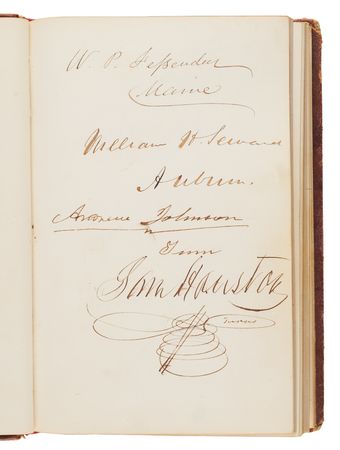 W. P. Fessenden
Maine
William H. Seward
Auburn.
Andrew Johnson
Tenn
Sam Houston
Texas